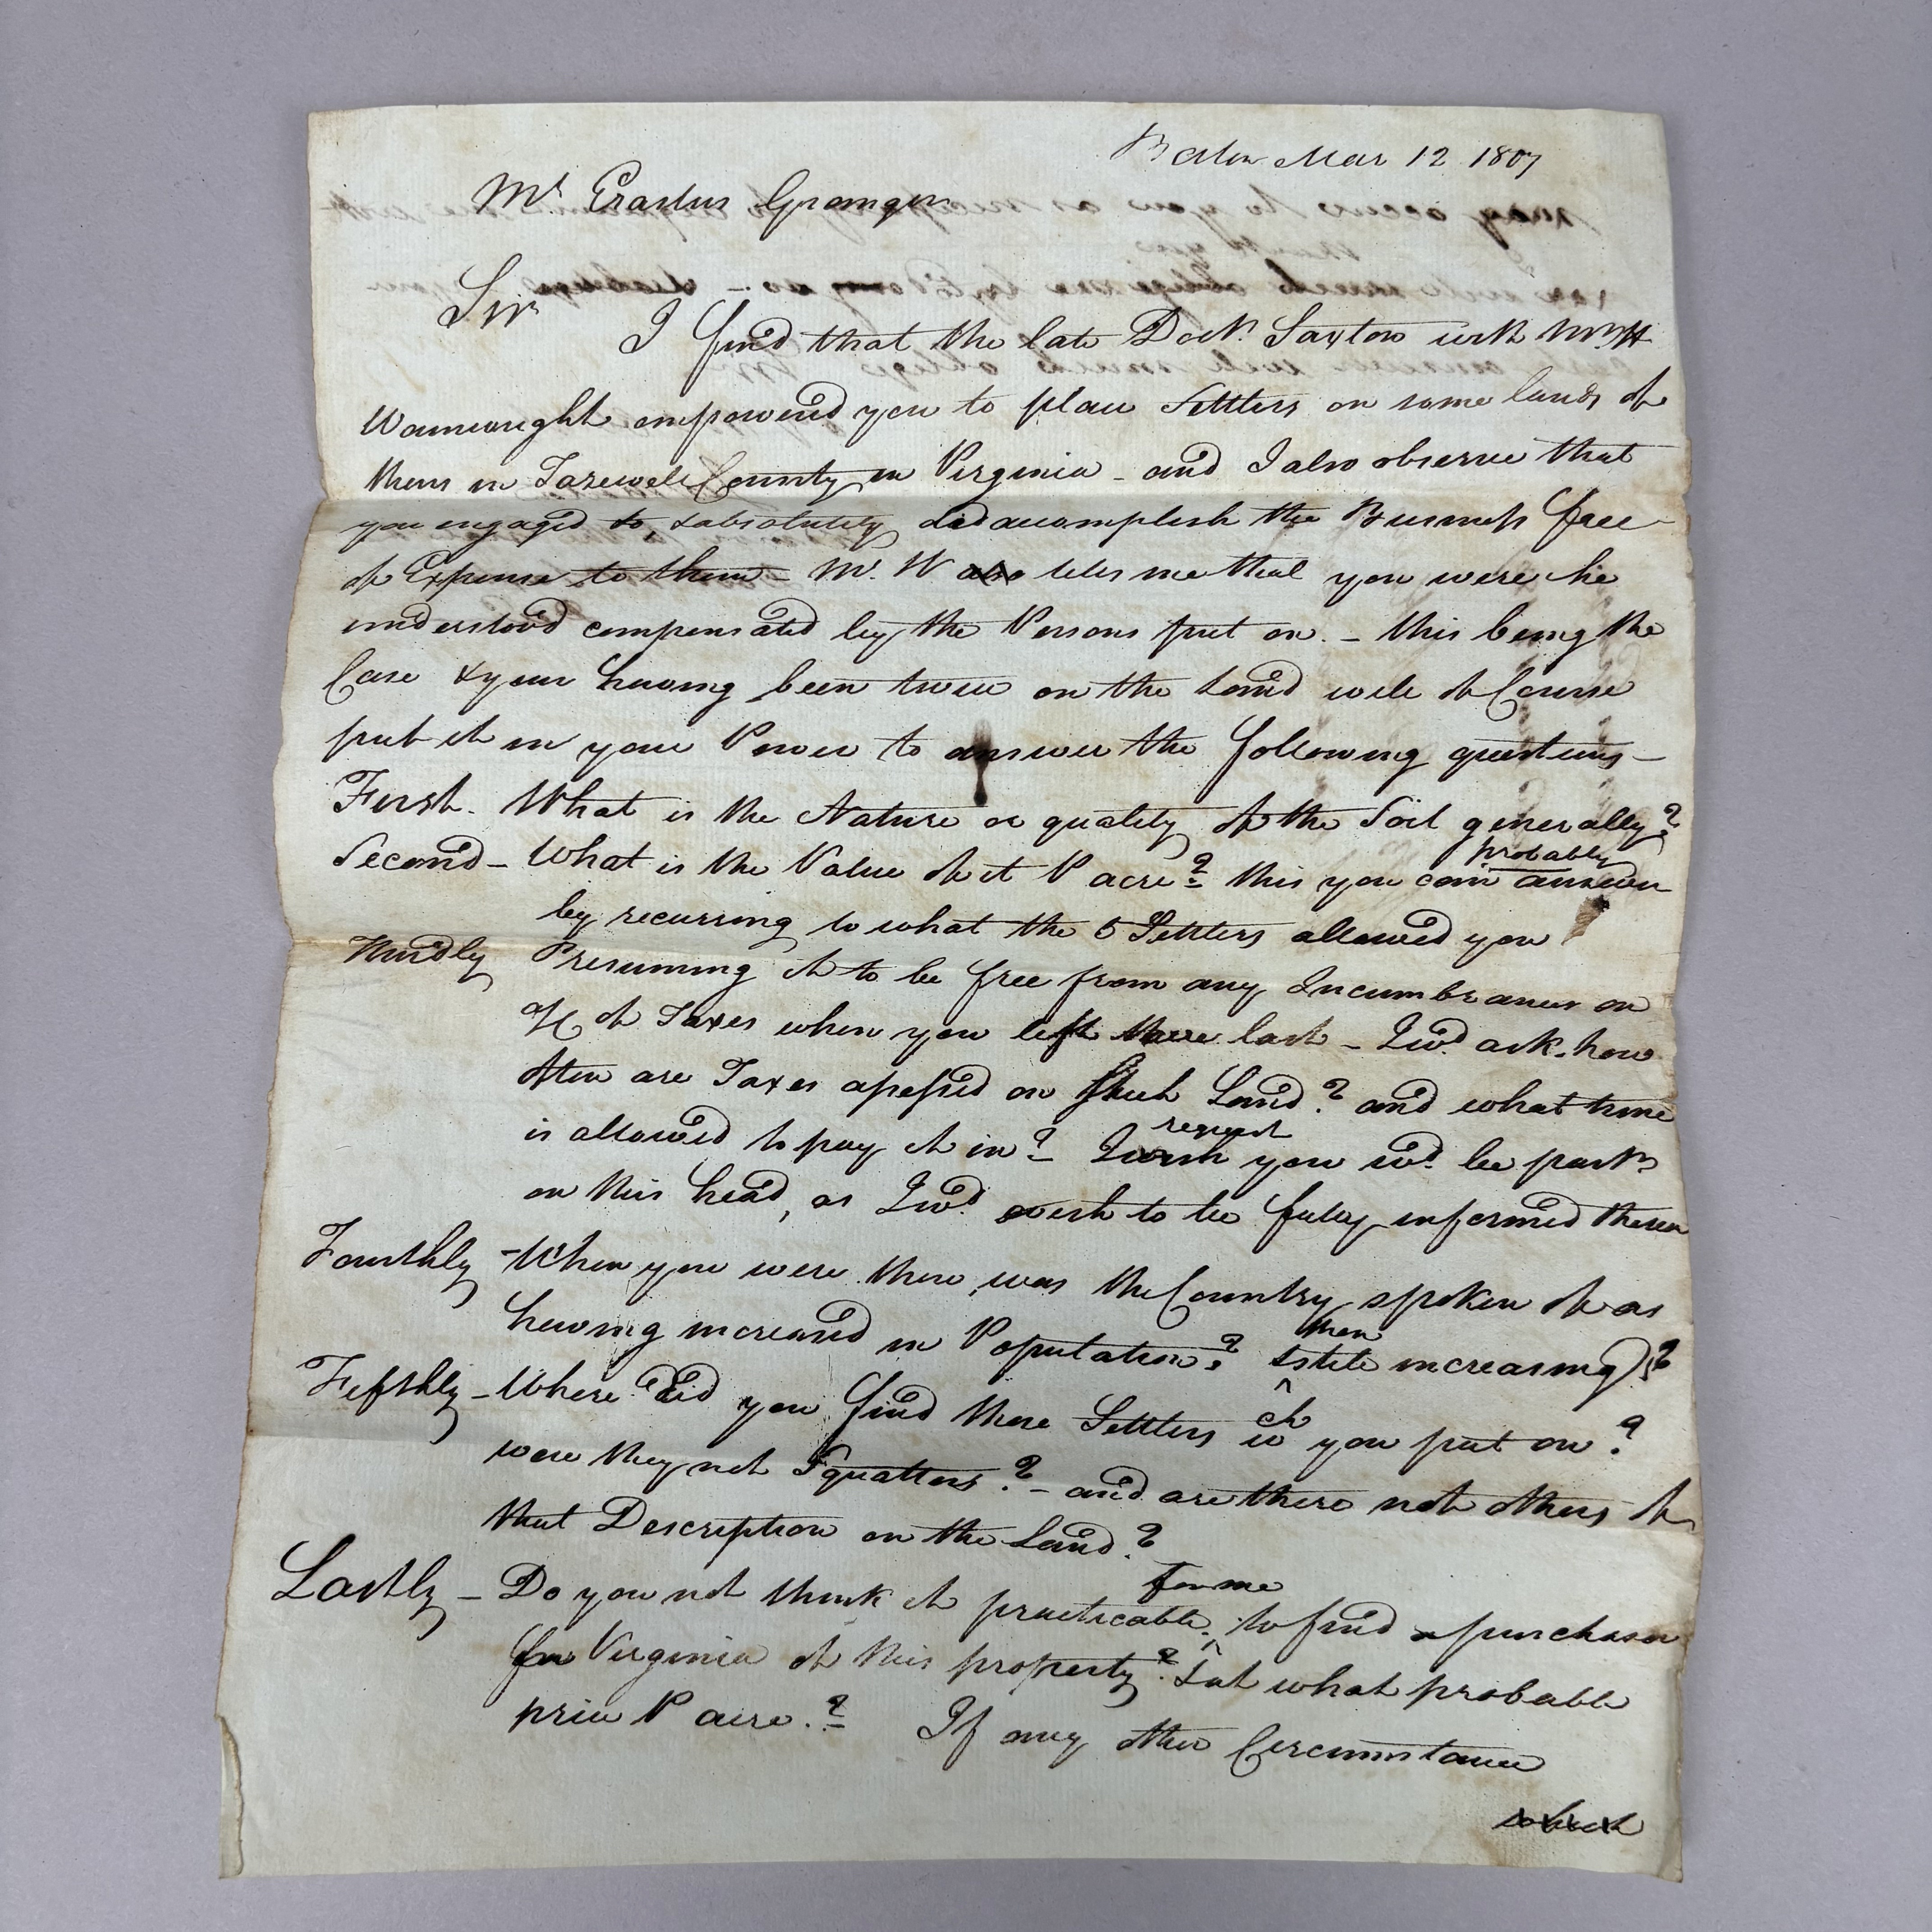 Boston Mar 12 1807
Mr. Erastus Granger
Sir
I find that the late Doct. Saxton with Mr. H
Wainwright empowered you to place Settlers on some lands of
theirs in Tazewell County in Virginia - and I also observe that
you engaged to, & absolutely did accomplish the Business free
of Expense to them - Mr. W also tells me that you were he
understood compensated by the Persons put on. - this being the
Case & your having been twice on the Land will of Course
put it in your Power to answer the following questions -
First. What is the Nature or quality of the Soil generally?
probably
Second - What is the Value of it P acre? this you can answer
by recurring to what the 5 Settlers allowed you
Thirdly Presuming it to be free from any Incumbrances on
of Taxes when you left there last - I wd. ask. how
often are Taxes assessed on such Land? and what time
request
is allowed to pay it in? I wish you wd. be partr
on this head, as I wd. wish to be fully informed thereon
Fourthly - When you were there, was the Country spoken of as
then
having increased in Population? & still increasing?
Fifthly - Where did you find these Settlers wch you put on?
were they not Squatters? - and are there not others of
that Description on the Land?
for me
Lastly - Do you not think it practicable, to find a purchaser
in Virginia of this property? & at what probable
price P acre.? If any other Circumstance